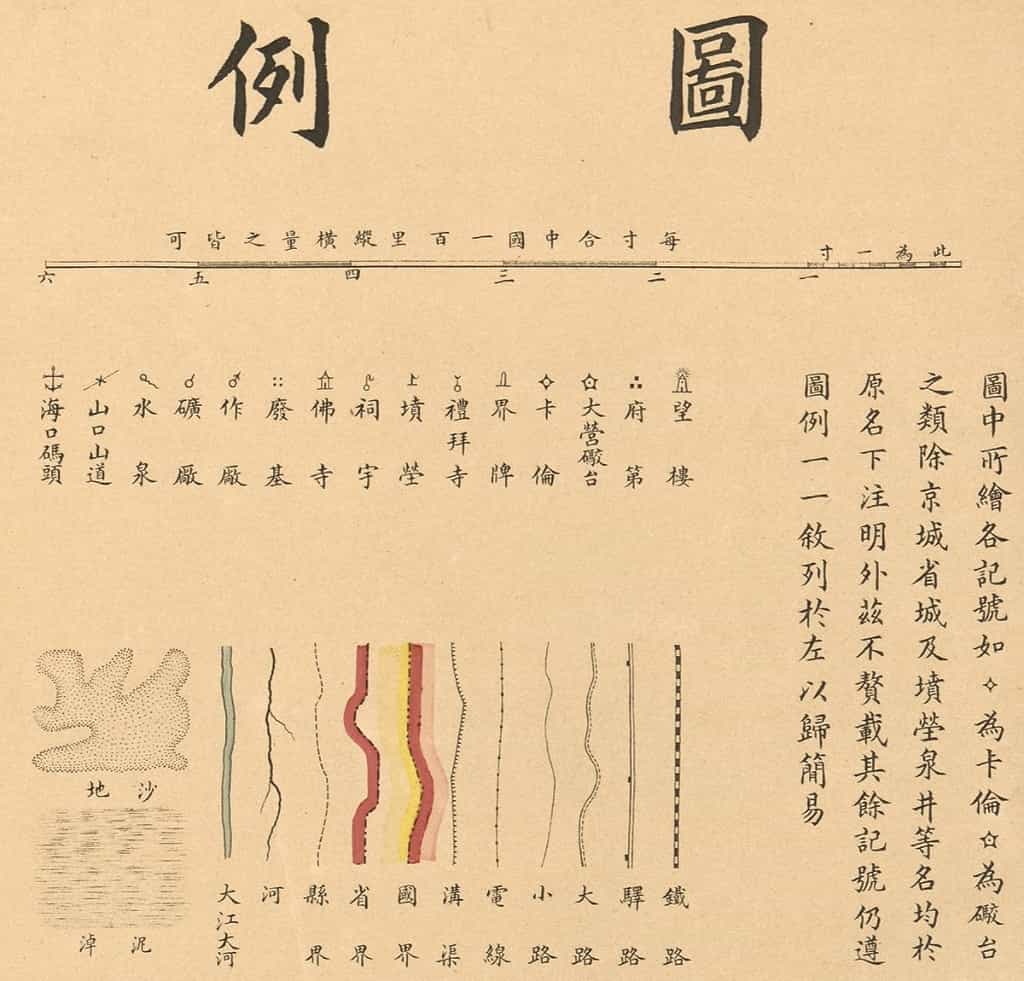 圖例
此為一寸
每寸合中國一百里縱橫量之皆可
一 二 三 四 五 六
圖中所繪各記號如✧為卡倫✩為礮台
之類除京城省城及墳塋泉井等名均於
原名下注明外茲不贅載其餘記號仍遵
圖例一一敘列於左以歸簡易
望樓
府第
大營礮台
卡倫
界牌
禮拜寺
墳塋
祠宇
佛寺
廢基
作廠
礦廠
水泉
山口山道
海口碼頭
鐵路
驛路
大路
小路
電線
溝渠
國界
省界
縣界
河
大江大河
沙地
泥淖